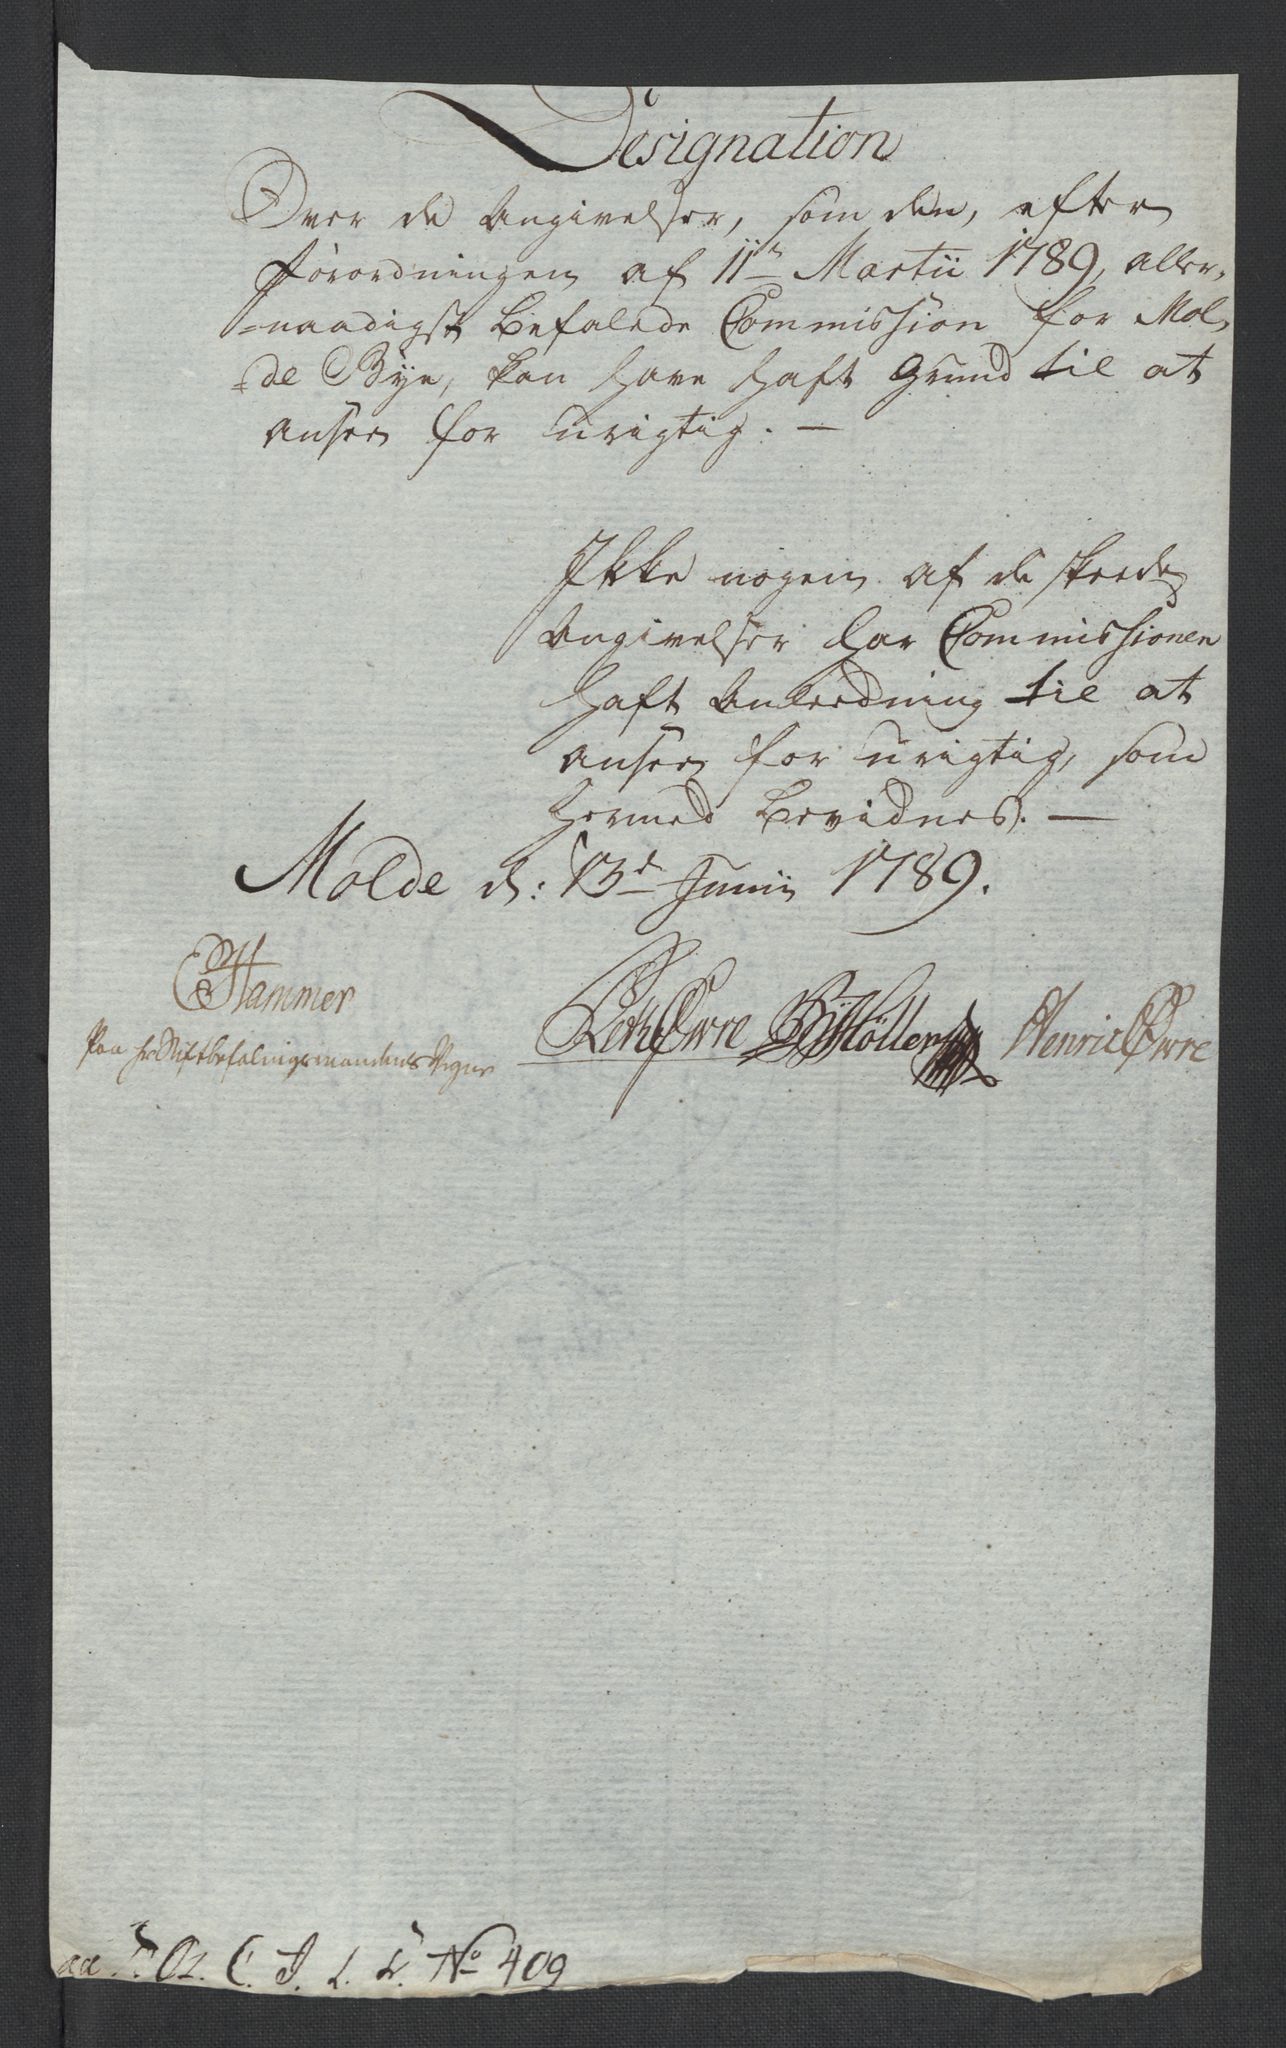 Designation
Over de Angivelser, som den, efter
Forordningen af 11te Martii 1789, aller-
-naadigst befalede Commission for Mol-
-de Bye, kan have haft Grund til at
ansee for urigtig. —
Ikke nogen af de skeede
Angivelser har Commissionen
haft Anleedning til at
ansee for urigtig, som
hermed bevidnes. —
Molde d: 13d Junii 1789.
Hammer
Paa Hr Stiftbefalingsmandens Vegne
Øwre Møller Henric Øwre
No 409